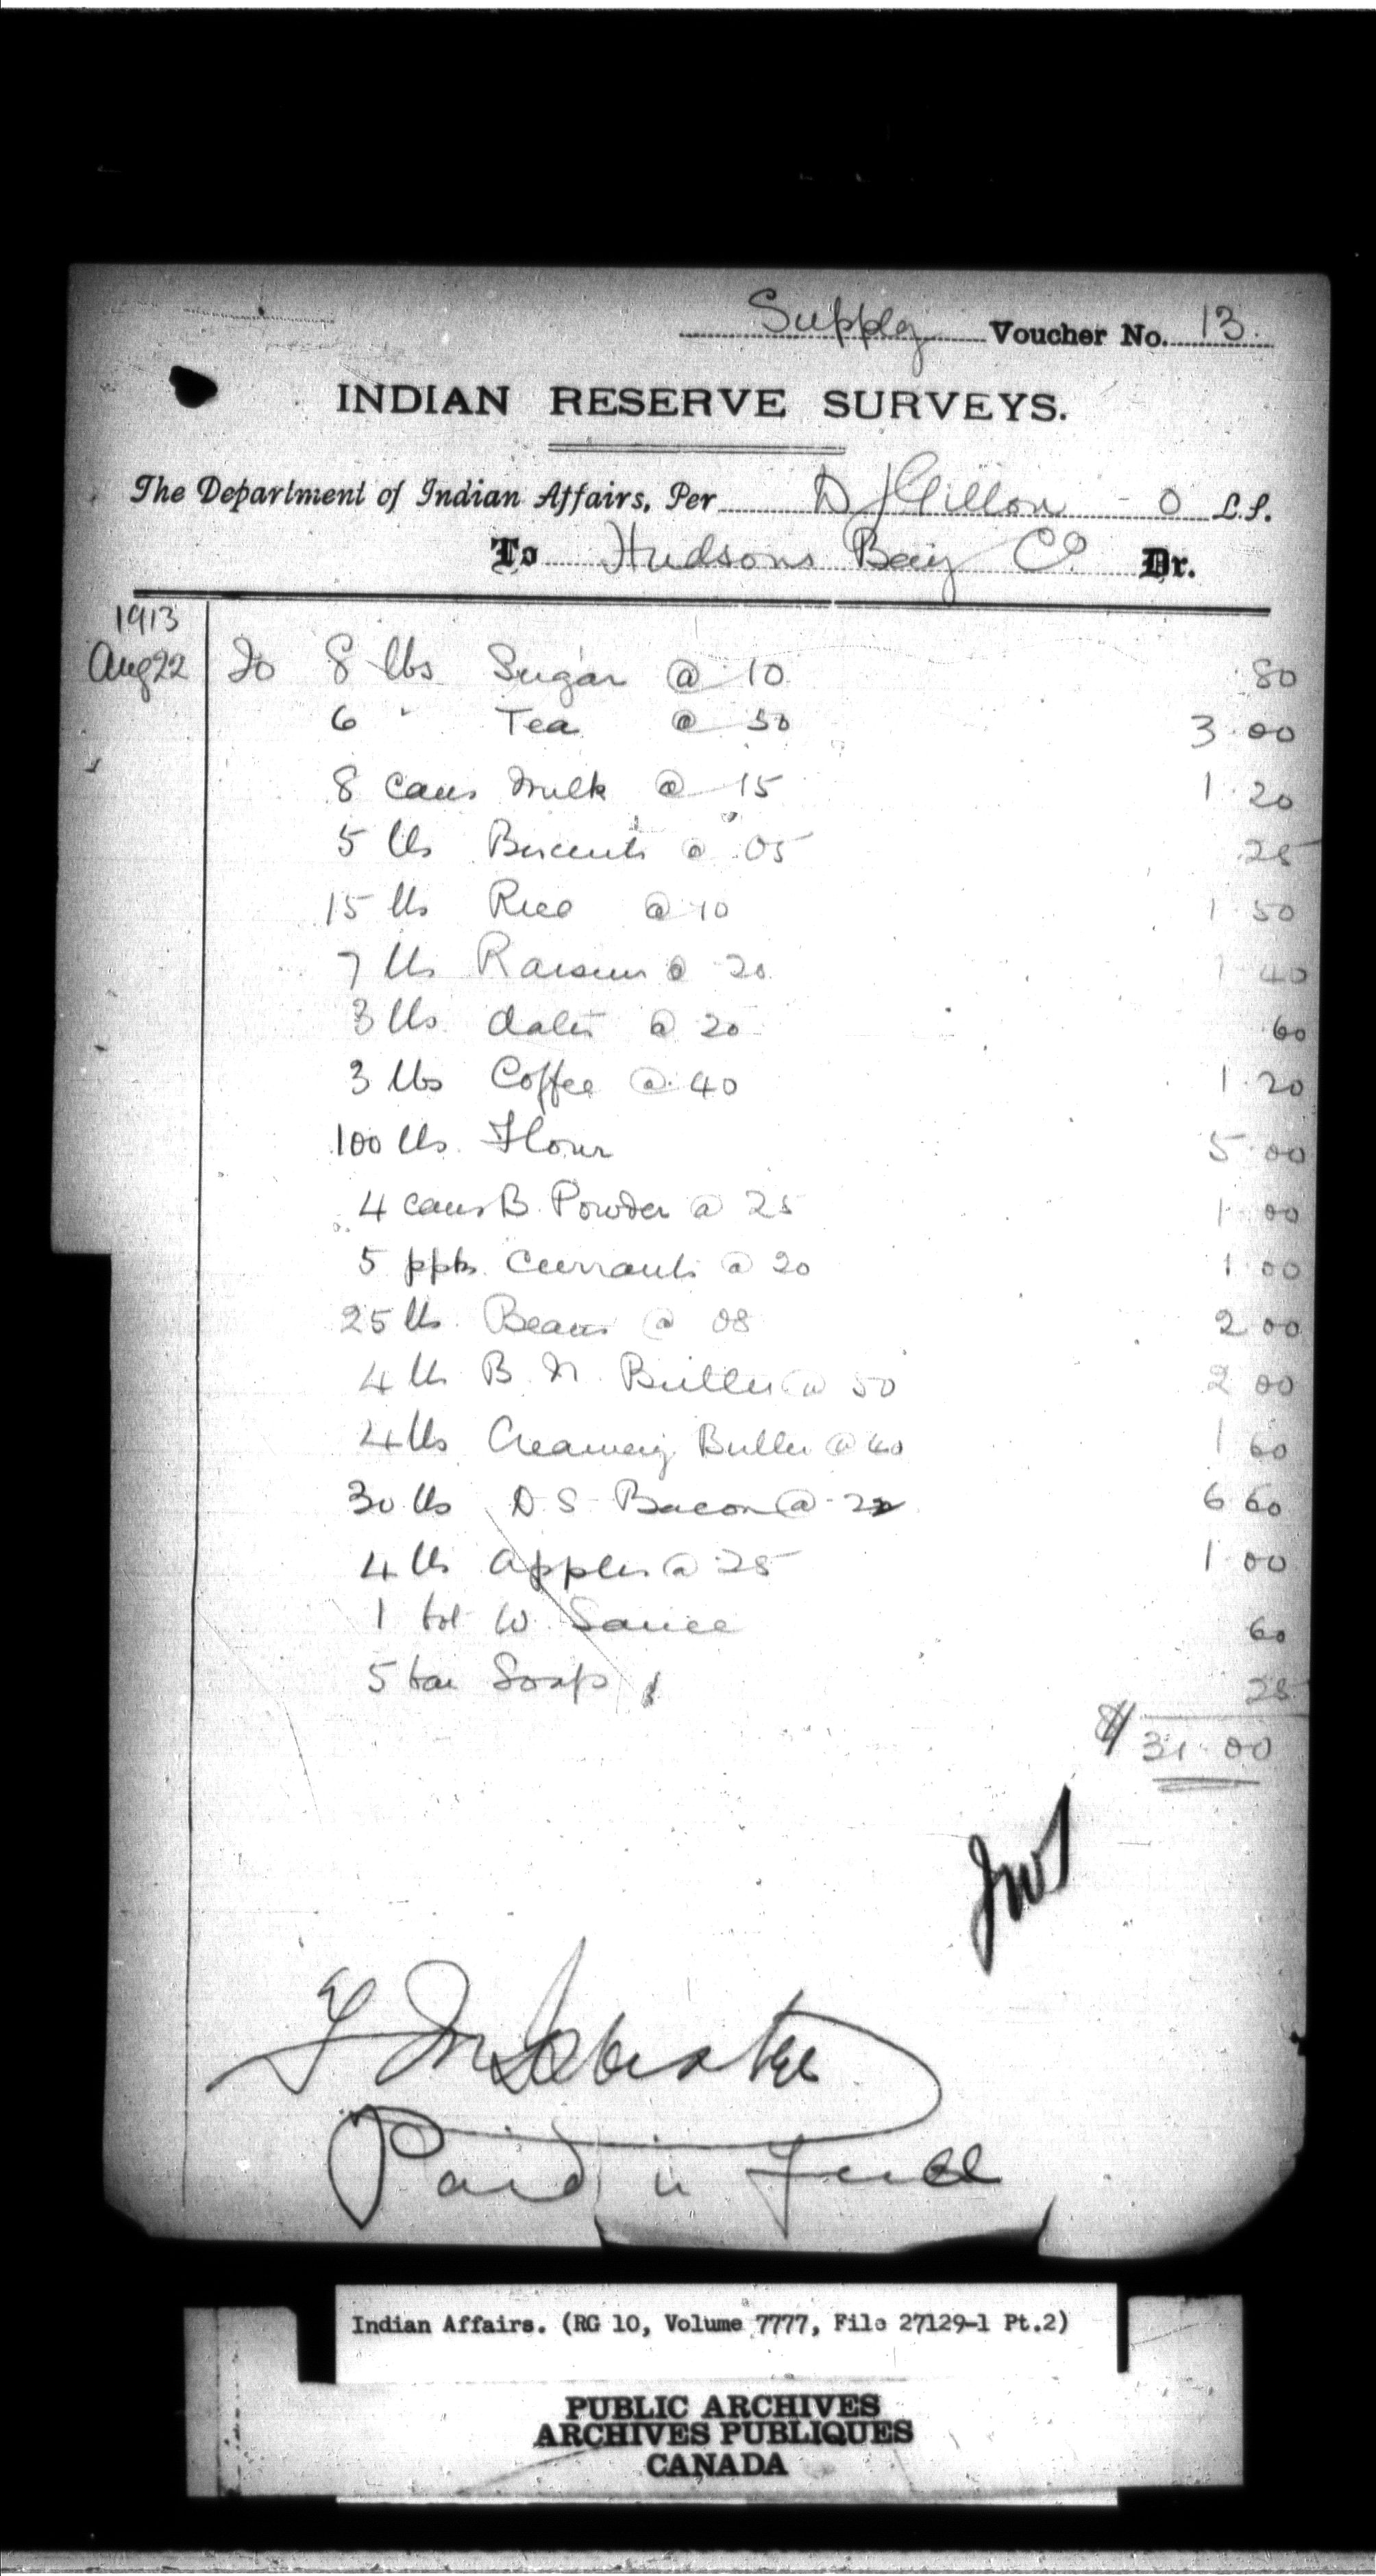 Supply Voucher No. 13.
INDIAN RESERVE SURVEYS.
The Department of Indian Affairs, Per D J Gillon - O L.S.
To Hudsons Bay Co Dr.
1913
Aug 22 To 8 lbs Sugar @ 10 .80
6 " Tea @ 50 3.00
8 cans Milk @ 15 1.20
5 lbs Biscuits @ .05 .25
15 lbs Rice @ 10 1.50
7 lbs Raisins @ 20 1.40
3 lbs dates @ 20 .60
3 lbs Coffee @ .40 1.20
100 lbs. Flour 5.00
4 cans B. Powder @ 25 1.00
5 ppks. Currants @ 20 1.00
25 lbs. Beans @ 08 2 00
4 lbs B. N. Butter @ 50 2 00
4 lbs Creamery Butter @ 40 1 60
30 lbs D S Bacon @ 22 6 60
4 lbs apples @ 25 1.00
1 bot W. Sauce 60
5 bar Soap 25
$ 31.00
Paid in Full
Indian Affairs. (RG 10, Volume 7777, File 27129-1 Pt.2)
PUBLIC ARCHIVES
ARCHIVES PUBLIQUES
CANADA